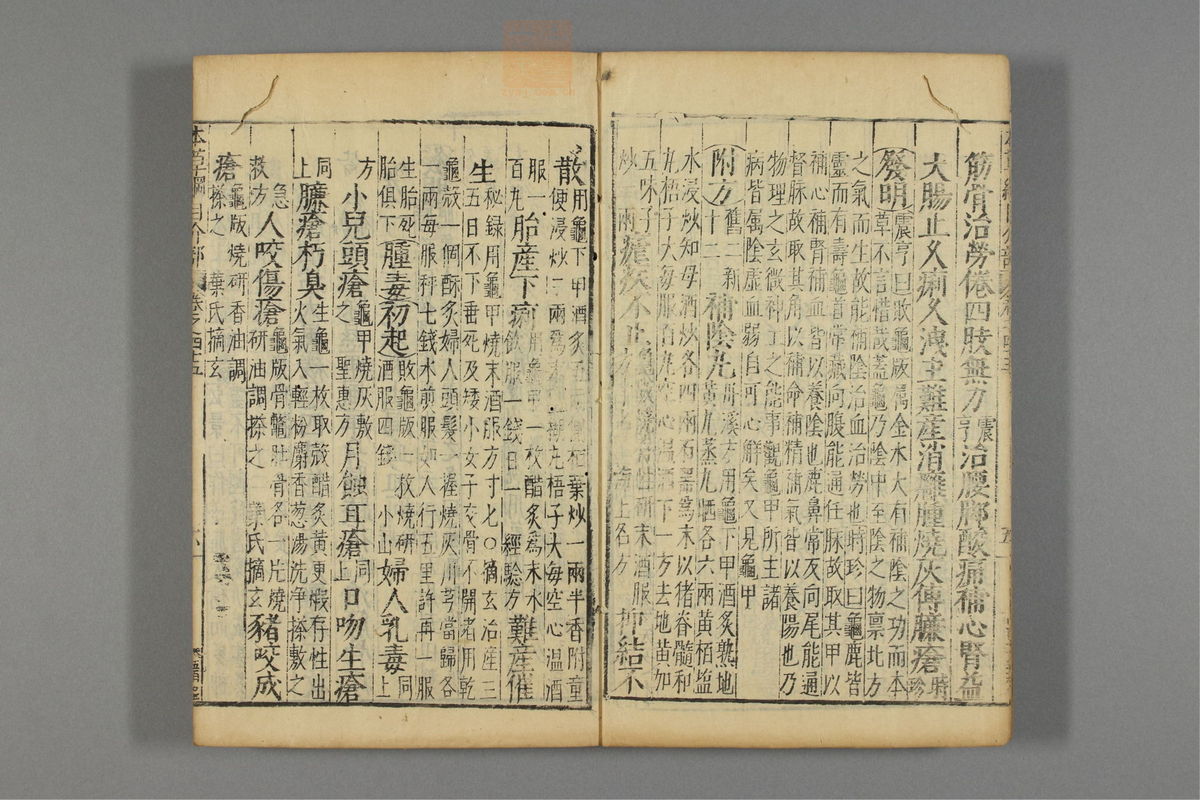 筋骨治勞倦四肢無力震亨治腰脚酸痛補心腎益
大腸止久痢久洩主難產消癰腫燒灰傅臁瘡時珍
發明震亨曰敗龜版屬金水大有補陰之功而本
草不言惜哉蓋龜乃陰中至陰之物禀北方
之氣而生故能補陰治血治勞也時珍曰龜鹿皆
靈而有壽龜首常藏向腹能通任脉故取其甲以
補心補腎補血皆以養陰也鹿鼻常反向尾能通
督脉故取其角以補命補精補氣皆以養陽也乃
物理之玄微神工之能事觀龜甲所主諸
病皆屬陰虛血弱自可心解矣又見鼈甲
附方舊二新十二補陰丸丹溪方用龜下甲酒炙熟地
黃九蒸九晒各六兩黃栢塩
水浸炒知母酒炒各四兩石器為末以猪脊髓和
丸梧子大每服百丸空心温酒下一方去地黃加
五味子
炒一兩瘧疾不止燒存性研末酒服
海上名方 抑結不
散用龜下甲酒炙五葉炒一兩半香附童
便浸炒二兩為梧子大每空心温酒
服一
百丸胎產下痢用龜甲一枚醋炙為末米
飲服一錢日二 經驗方 難產催
生秘録用龜甲燒末酒服方寸匕〇摘玄治產三
五日不下垂死及矮小女子交骨不開者用乾
龜殻一個酥炙婦人頭髮一握燒灰川芎當歸各
一兩每服秤七錢水煎服如人行五里許再一服
生胎死
胎俱下腫毒初起敗龜版一枚燒研
酒服四錢 小山婦人乳毒同上
方小兒頭瘡龜甲燒灰敷
之 聖惠方月蝕耳瘡同上口吻生瘡
同上臁瘡朽臭生龜一枚取殻醋炙黃更煅存性出
火氣入輕粉麝香葱湯洗净搽敷之
急救方人咬傷瘡龜版骨鼈肚骨各一片燒
研油調搽之 葉氏摘玄豬咬成
瘡龜版燒研香油調
搽之 葉氏摘玄